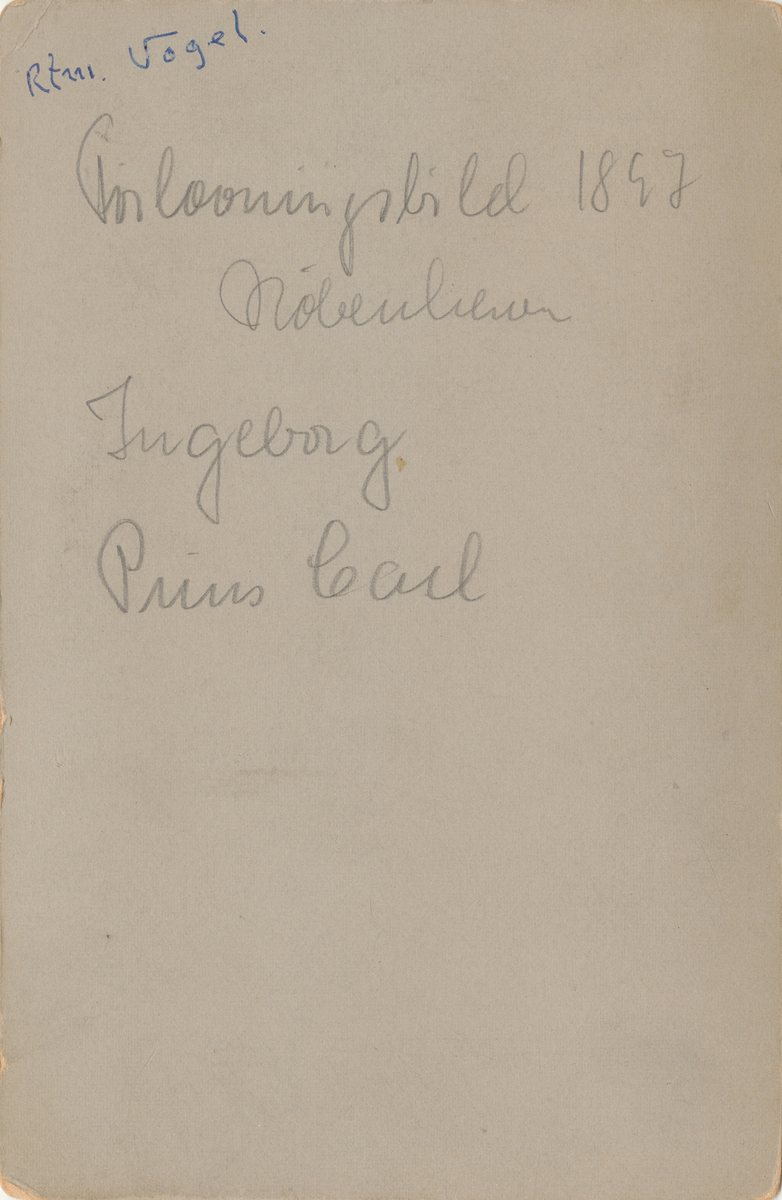 Rtm. Vogel.
Förlovningsbild 1897
Köbenhavn
Ingeborg
Prins Carl